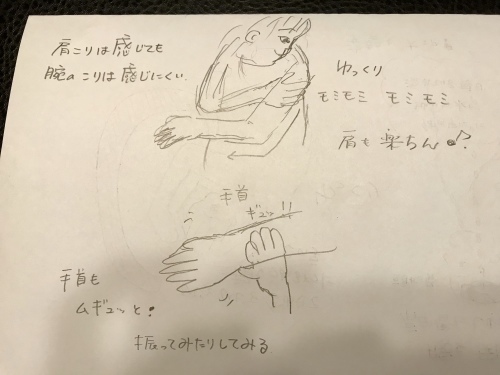 肩こりは感じても
腕のこりは感じにくい
ゆっくり
モミモミ モミモミ
肩も楽ちん♪?
手首
ギュッ!!
手首も
ムギュッと。
振ってみたりしてみる